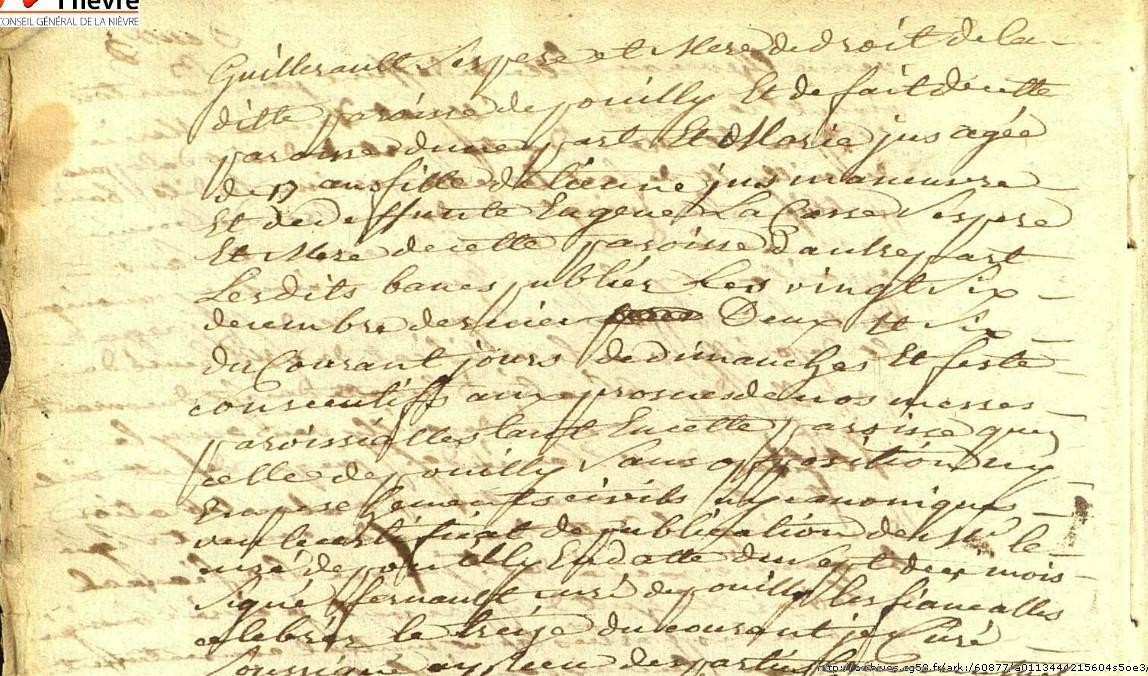 la Nièvre
CONSEIL GÉNÉRAL DE LA NIÈVRE
Guillerault Ses pere et Mere de droit de la
ditte paroisse de pouilly Et de fait de cette
paroisse dune part Et Marie jus agée
de ans fille de jus manoeuvre
Et de deffunte Eugene La Casse Ses pere
Et Mere de cette paroisse Dautre part
Lesdits bancs publiés Les vingt Six
decembre dernier Deux et Six
du Courant jours de dimanches Et feste
consecutifs aux prosnes de nos messes
paroissialles tant En cette paroisse que
celle de pouilly Sans opposition ny
Empeschements civils ny canoniques
vu le certificat de publication de Mr le
curé de pouilly En datte du Sept de ce mois
Signé curé de pouilly les fiancalles
celebrées le treize du courant je Curé
Soussigné ay des parties
http://archives.cg58.fr/ark:/60877/a011344d215604s5oe3/